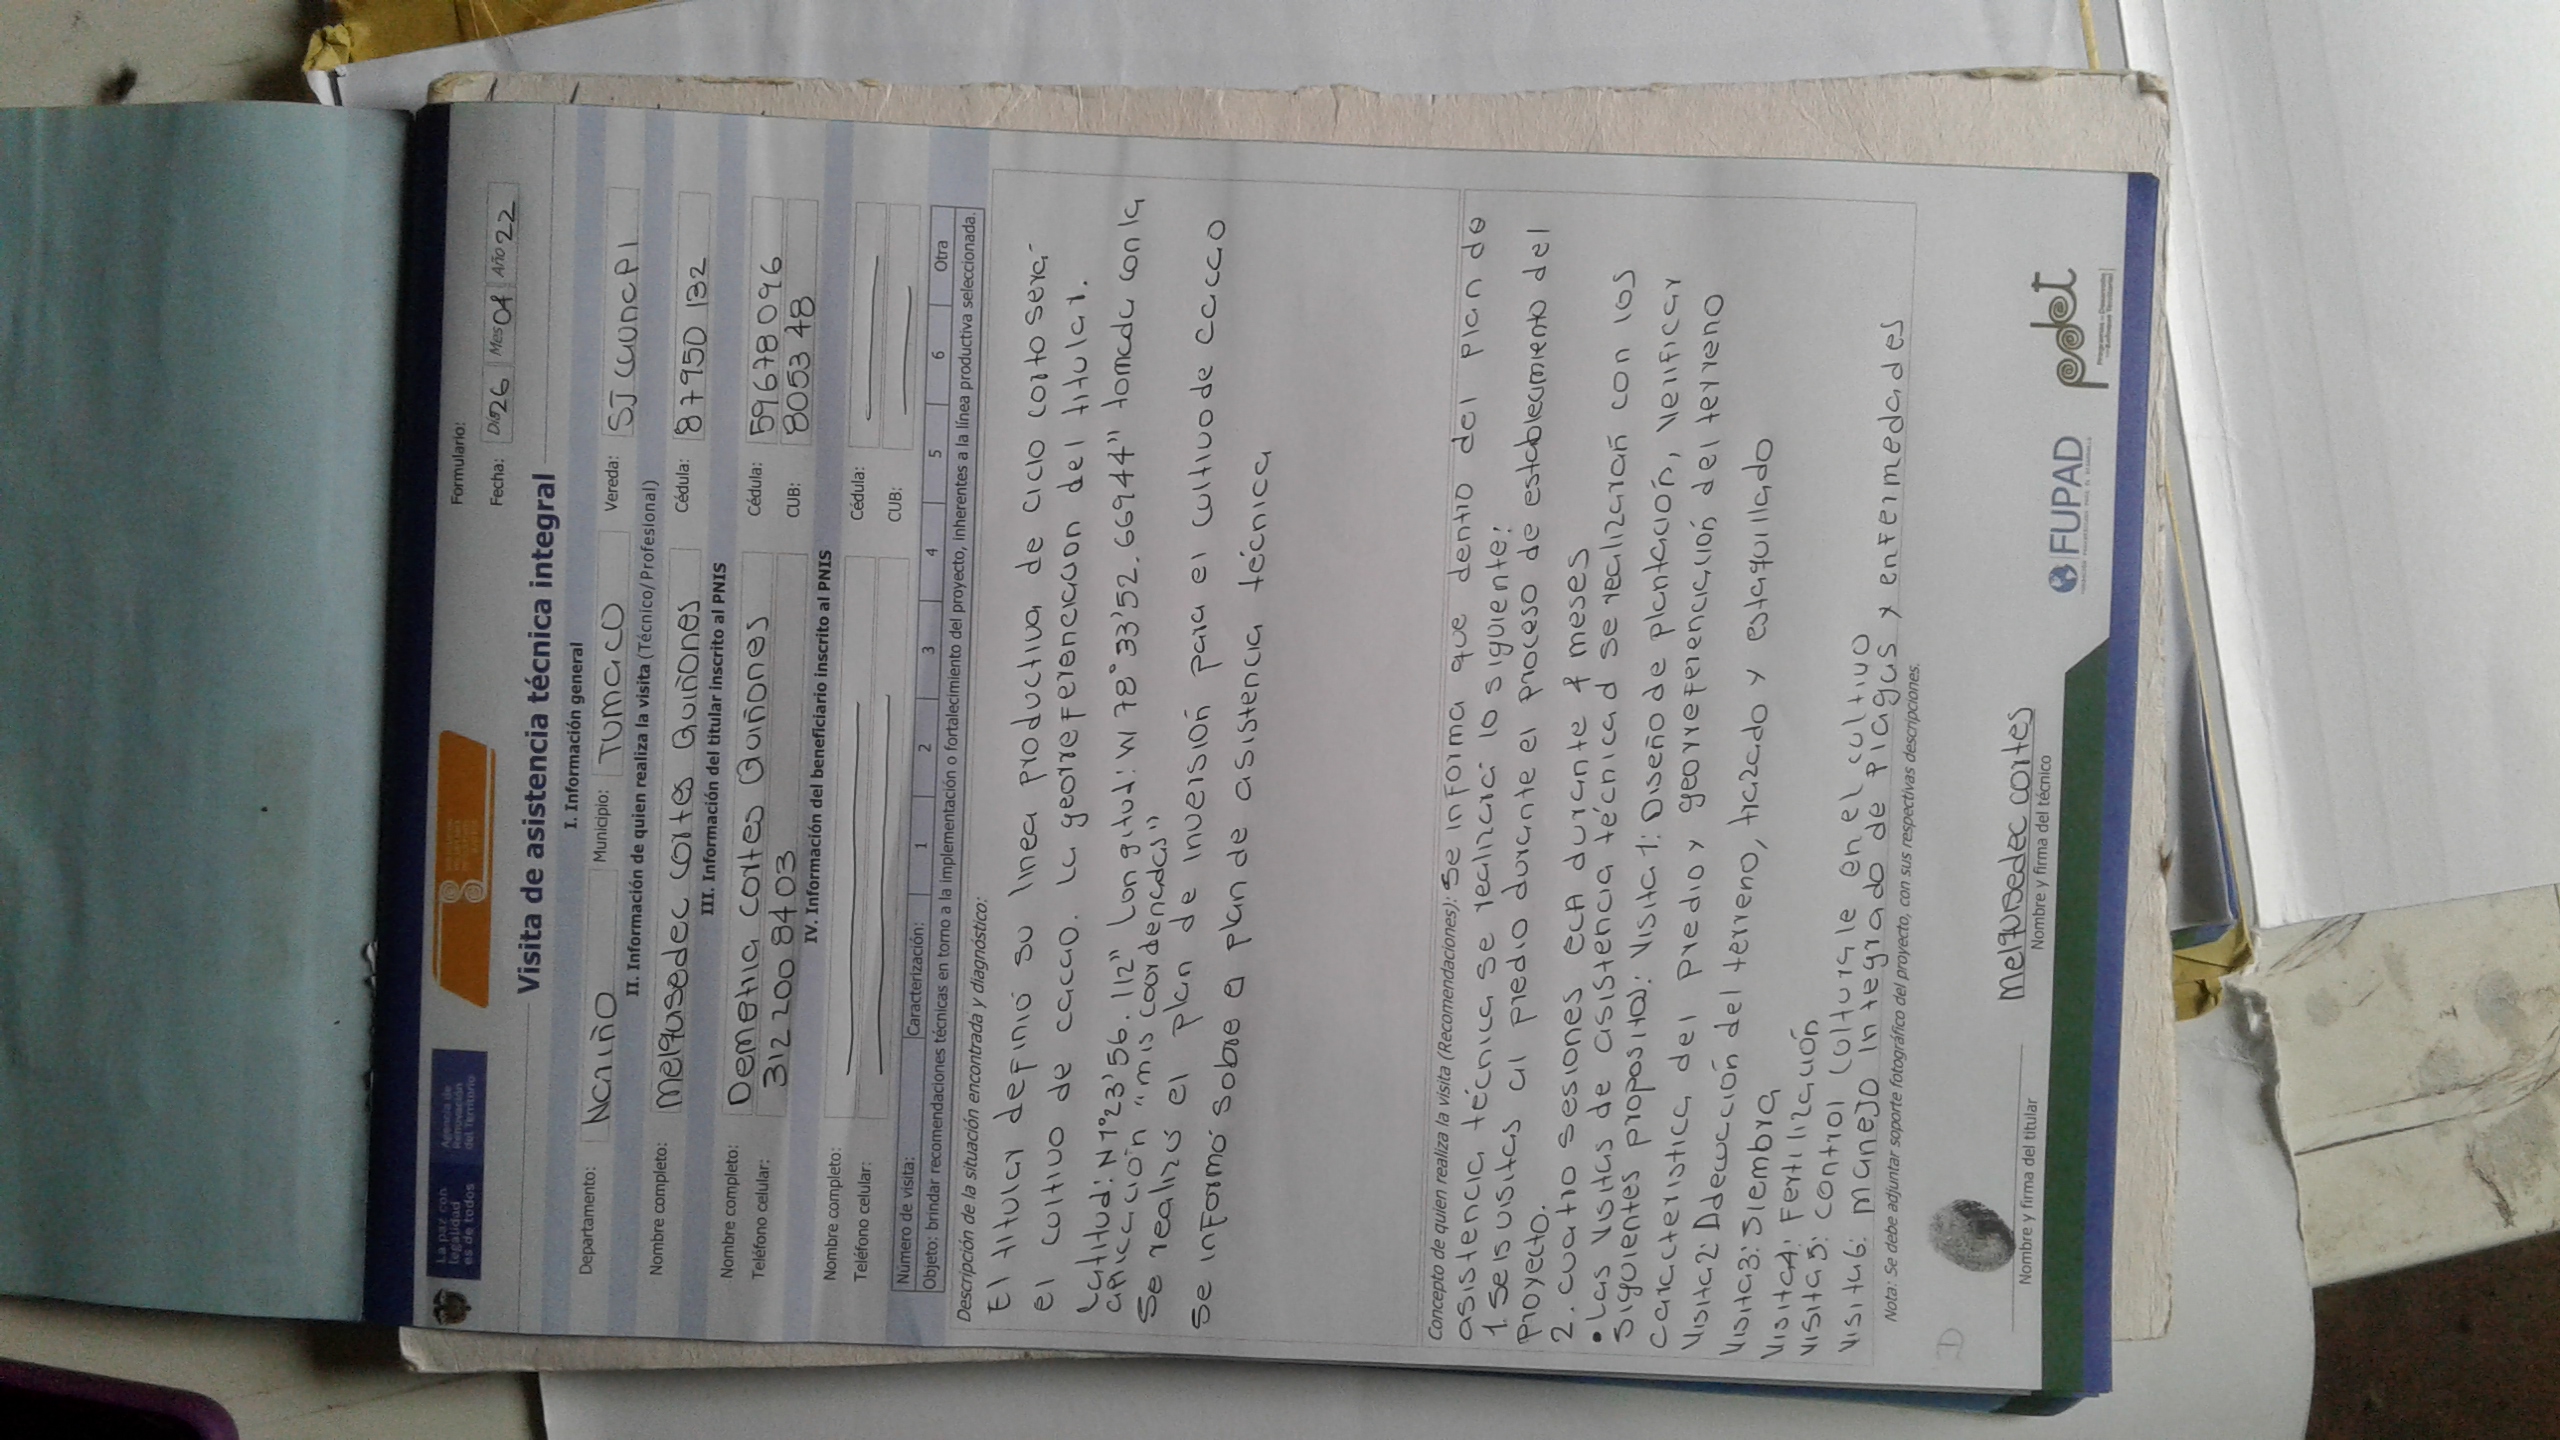 La paz con
legalidad
es de todos
Agencia de
Renovación
del Territorio
Formulario:
Fecha: Día 26 Mes 04 Año 22
Visita de asistencia técnica integral
I. Información general
Departamento: Nariño Municipio: Tumaco Vereda: SJ caunapi
II. Información de quien realiza la visita (Técnico/Profesional)
Nombre completo: Melqusedec cortes Quiñones Cédula: 87950132
III. Información del titular inscrito al PNIS
Nombre completo: Demetria cortes Quiñones Cédula: 59678096
Teléfono celular: 312 200 8403 CUB: 8053 48
IV. Información del beneficiario inscrito al PNIS
Nombre completo: Cédula:
Teléfono celular: CUB:
Número de visita: Caracterización: 1 2 3 4 5 6 Otra
Objeto: brindar recomendaciones técnicas en torno a la implementación o fortalecimiento del proyecto, inherentes a la línea productiva seleccionada.
Descripción de la situación encontrada y diagnóstico:
El titular definió su linea productiva de ciclo corto será
el cultivo de cacao. la georreferenciacion del titular.
Latitud: N 1°23'56.112" Longitud: W 78°33'52.66944" tomada con la
aplicación "mis coordenadas"
Se realizo el plan de inversión para el cultivo de cacao
se informó sobre el plan de asistencia técnica
Concepto de quien realiza la visita (Recomendaciones): Se informa que dentro del plan de
asistencia técnica se realizará lo siguiente:
1. Seis visitas al predio durante el proceso de establecimiento del
proyecto.
2. cuatro sesiones ECA durante 4 meses
• Las visitas de asistencia técnica d se realizarañ con los
siguientes proposito): Visita 1: Diseño de plantación, Verificar
caracteristica del predio y georreferenciación del terreno
Visita 2: Adecuación del terreno, trazado y estaquillado
Visita 3: Siembra
Visita 4: Fertilización
Visita 5: control culturale en el cultivo
Visita 6: manejo integrado de plagas y enfermedades
Nota: Se debe adjuntar soporte fotográfico del proyecto, con sus respectivas descripciones.
D
Melqusedec cortes
Nombre y firma del titular
Nombre y firma del técnico
FUPAD
pdet